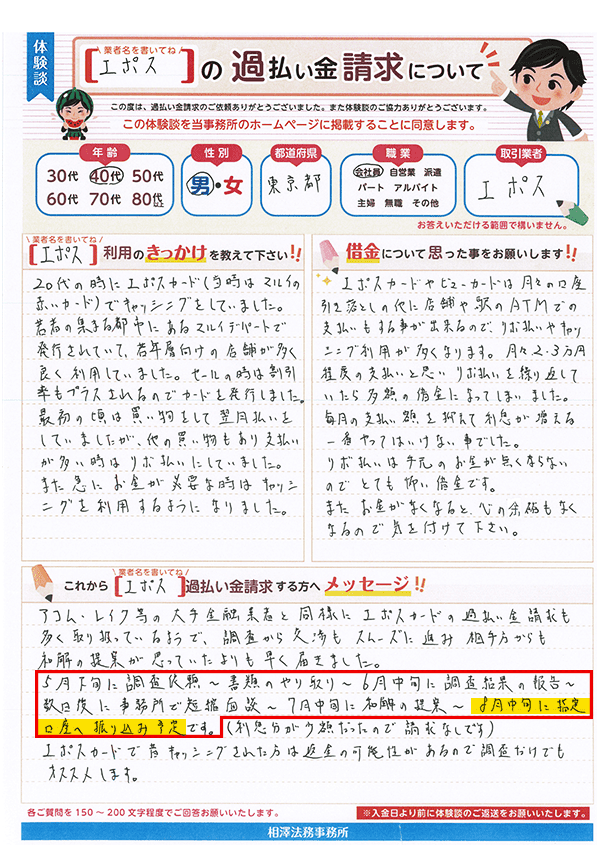 体験談
業者名を書いてね
[エポス]の過払い金請求について
この度は、過払い金請求のご依頼ありがとうございました。また体験談のご協力ありがとうございます。
この体験談を当事務所のホームページに掲載することに同意します。
年齢
30代 40代 50代
60代 70代 80代
性別
男・女
都道府県
東京都
職業
会社員 自営業 派遣
パート アルバイト
主婦 無職 その他
取引業者
エポス
お答えいただける範囲で構いません。
業者名を書いてね
[エポス]利用のきっかけを教えて下さい!!
20代の時にエポスカード(当時はマルイの
赤いカード)でキャッシングをしていました。
若者の集まる都中にあるマルイデパートで
発行されていて、若年層向けの店舗が多く
良く利用していました。セールの時は割引
率もプラスされるのでカードを発行しました。
最初の頃は買い物をして翌月払いを
していましたが、他の買い物もあり支払い
が多い時はリボ払いにしていました。
また急にお金が必要な時はキャッシ
ングを利用するようになりました。
借金について思った事をお願いします!!
エポスカードやビューカードは月々の口座
引き落としの他に店舗や駅のATMでの
支払いもする事が出来るので、リボ払いやキャッシ
ング利用が多くなります。月々2-3万円
程度の支払いと思いリボ払いを繰り返して
いたら多額の借金になってしまいました。
毎月の支払い額を抑えて利息が増える
一番やってはいけない事でした。
リボ払いは手元のお金が無くならない
のでとても怖い借金です。
またお金がなくなると、心の余裕もなく
なるので気を付けて下さい。
業者名を書いてね
これから[エポス]過払い金請求する方へメッセージ!!
アコム・レイク等の大手金融業者と同様にエポスカードの過払い金請求も
多く取り扱っているようで、調査から交渉もスムーズに進み相手方からも
和解の提案が思っていたよりも早く届きました。
5月下旬に調査依頼〜書類のやり取り〜6月中旬に調査結果の報告〜
数日後に事務所で短縮面談〜7月中旬に和解の提案〜8月中旬に指定
口座へ振り込み予定です。(利息分が少額だったので請求なしです)
エポスカードで昔キャッシングされた方は返金の可能性があるので調査だけでも
オススメします。
各ご質問を150〜200文字程度でご回答お願いいたします。
※入金日より前に体験談のご返送をお願いいたします。
相澤法務事務所